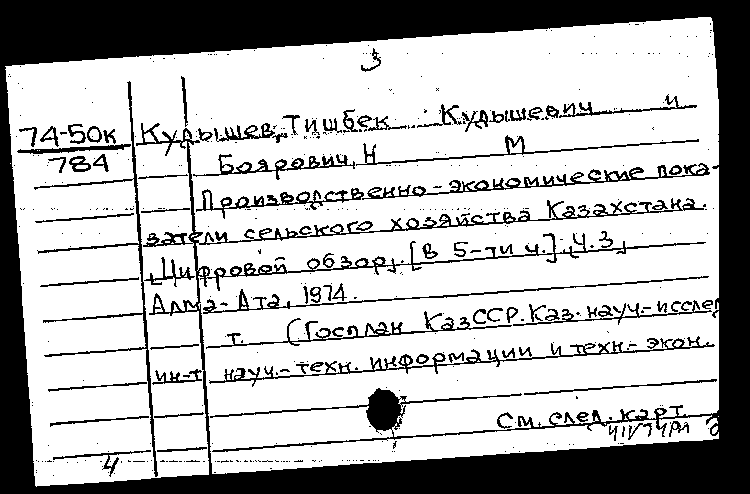 3
74-50к Кудышев, Тишбек Кудышевич и
784 Боярович, Н М
Производственно-экономические пока-
затели сельского хозяйства Казахстана.
"Цифровой обзор". [В 5-ти ч.], Ч.3,
Алма-Ата, 1974.
т. (Госплан КазССР. Каз. науч.-исслед
ин-т науч.-техн. информации и техн.-экон.
См. след. карт.
4